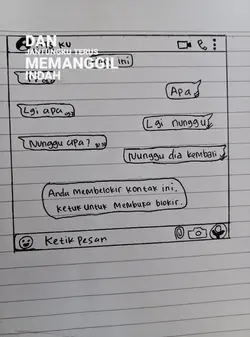 DAN
JANTUNGKU TERUS
MEMANGGIL
INDAH
ku
ini
Apa
Lgi apa
Lgi nunggu
Nunggu apa?
Nunggu dia kembali
Anda memblokir kontak ini.
Ketuk untuk Membuka blokir.
Ketik pesan